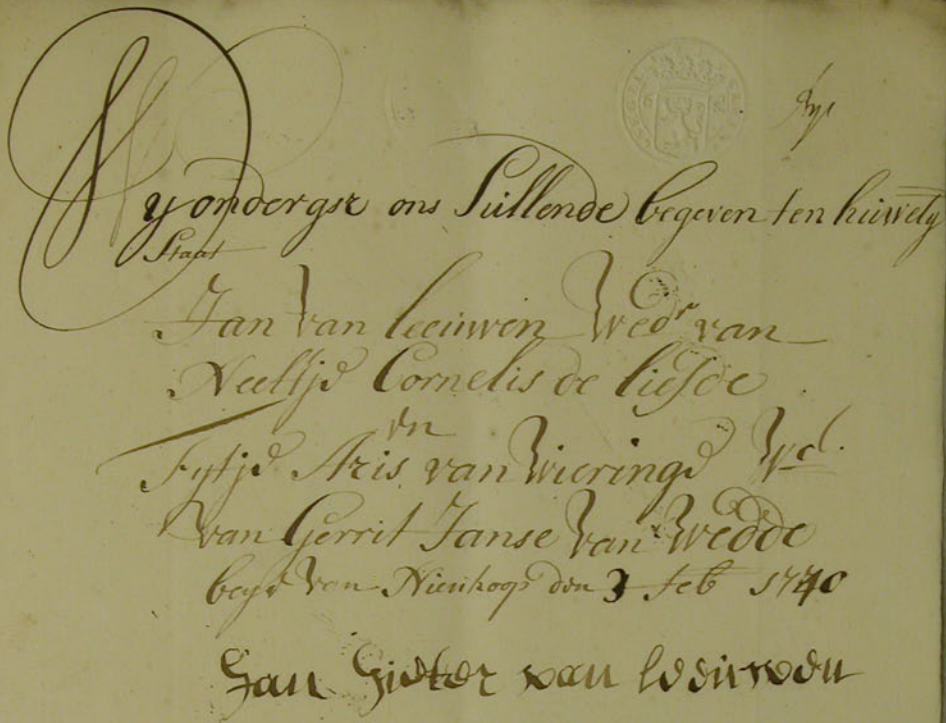 Wy ondergsz ons Sullende begeven ten huwely
Staat
Jan van leeuwen Wedr van
Neeltje Cornelis de liefde
en
Fytje Aris van Wieringe Wed.
van Gerrit Janse van Wedde
beyde van Nienkoop den 3 feb 1740
Jan Pieter van leeuwen